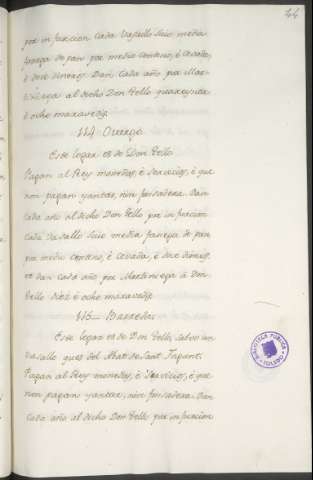 44
por infurcion cada vasallo suio media
fanega de pan por medio centeno, è cevada,
è doce dineros. Dan cada año por Mar-
tiniega al dicho Don Tello quarenta
è ocho maravedis.
114 
Este logar es de Don Tello.
Pagan al Rey monedas, è servicios, è que
non pagan yantar, nin fonsadera. Dan
cada año al dicho Don Tello por infurcion
cada vasallo suio media fanega de pan
por medio centeno, è cevada, è doce dineros,
et dan cada año por Martiniega à Don
Tello diez è ocho maravedis
115 = Barredas
Este logar es de Don Tello, salvo un
vasallo ques del Abat de Sant
Pagan al Rey monedas, è servicios, è que
non pagan yantar, nin fonsadera. Dan
cada año al dicho Don Tello por infurcion
BIBLIOTECA PUBLICA
TOLEDO